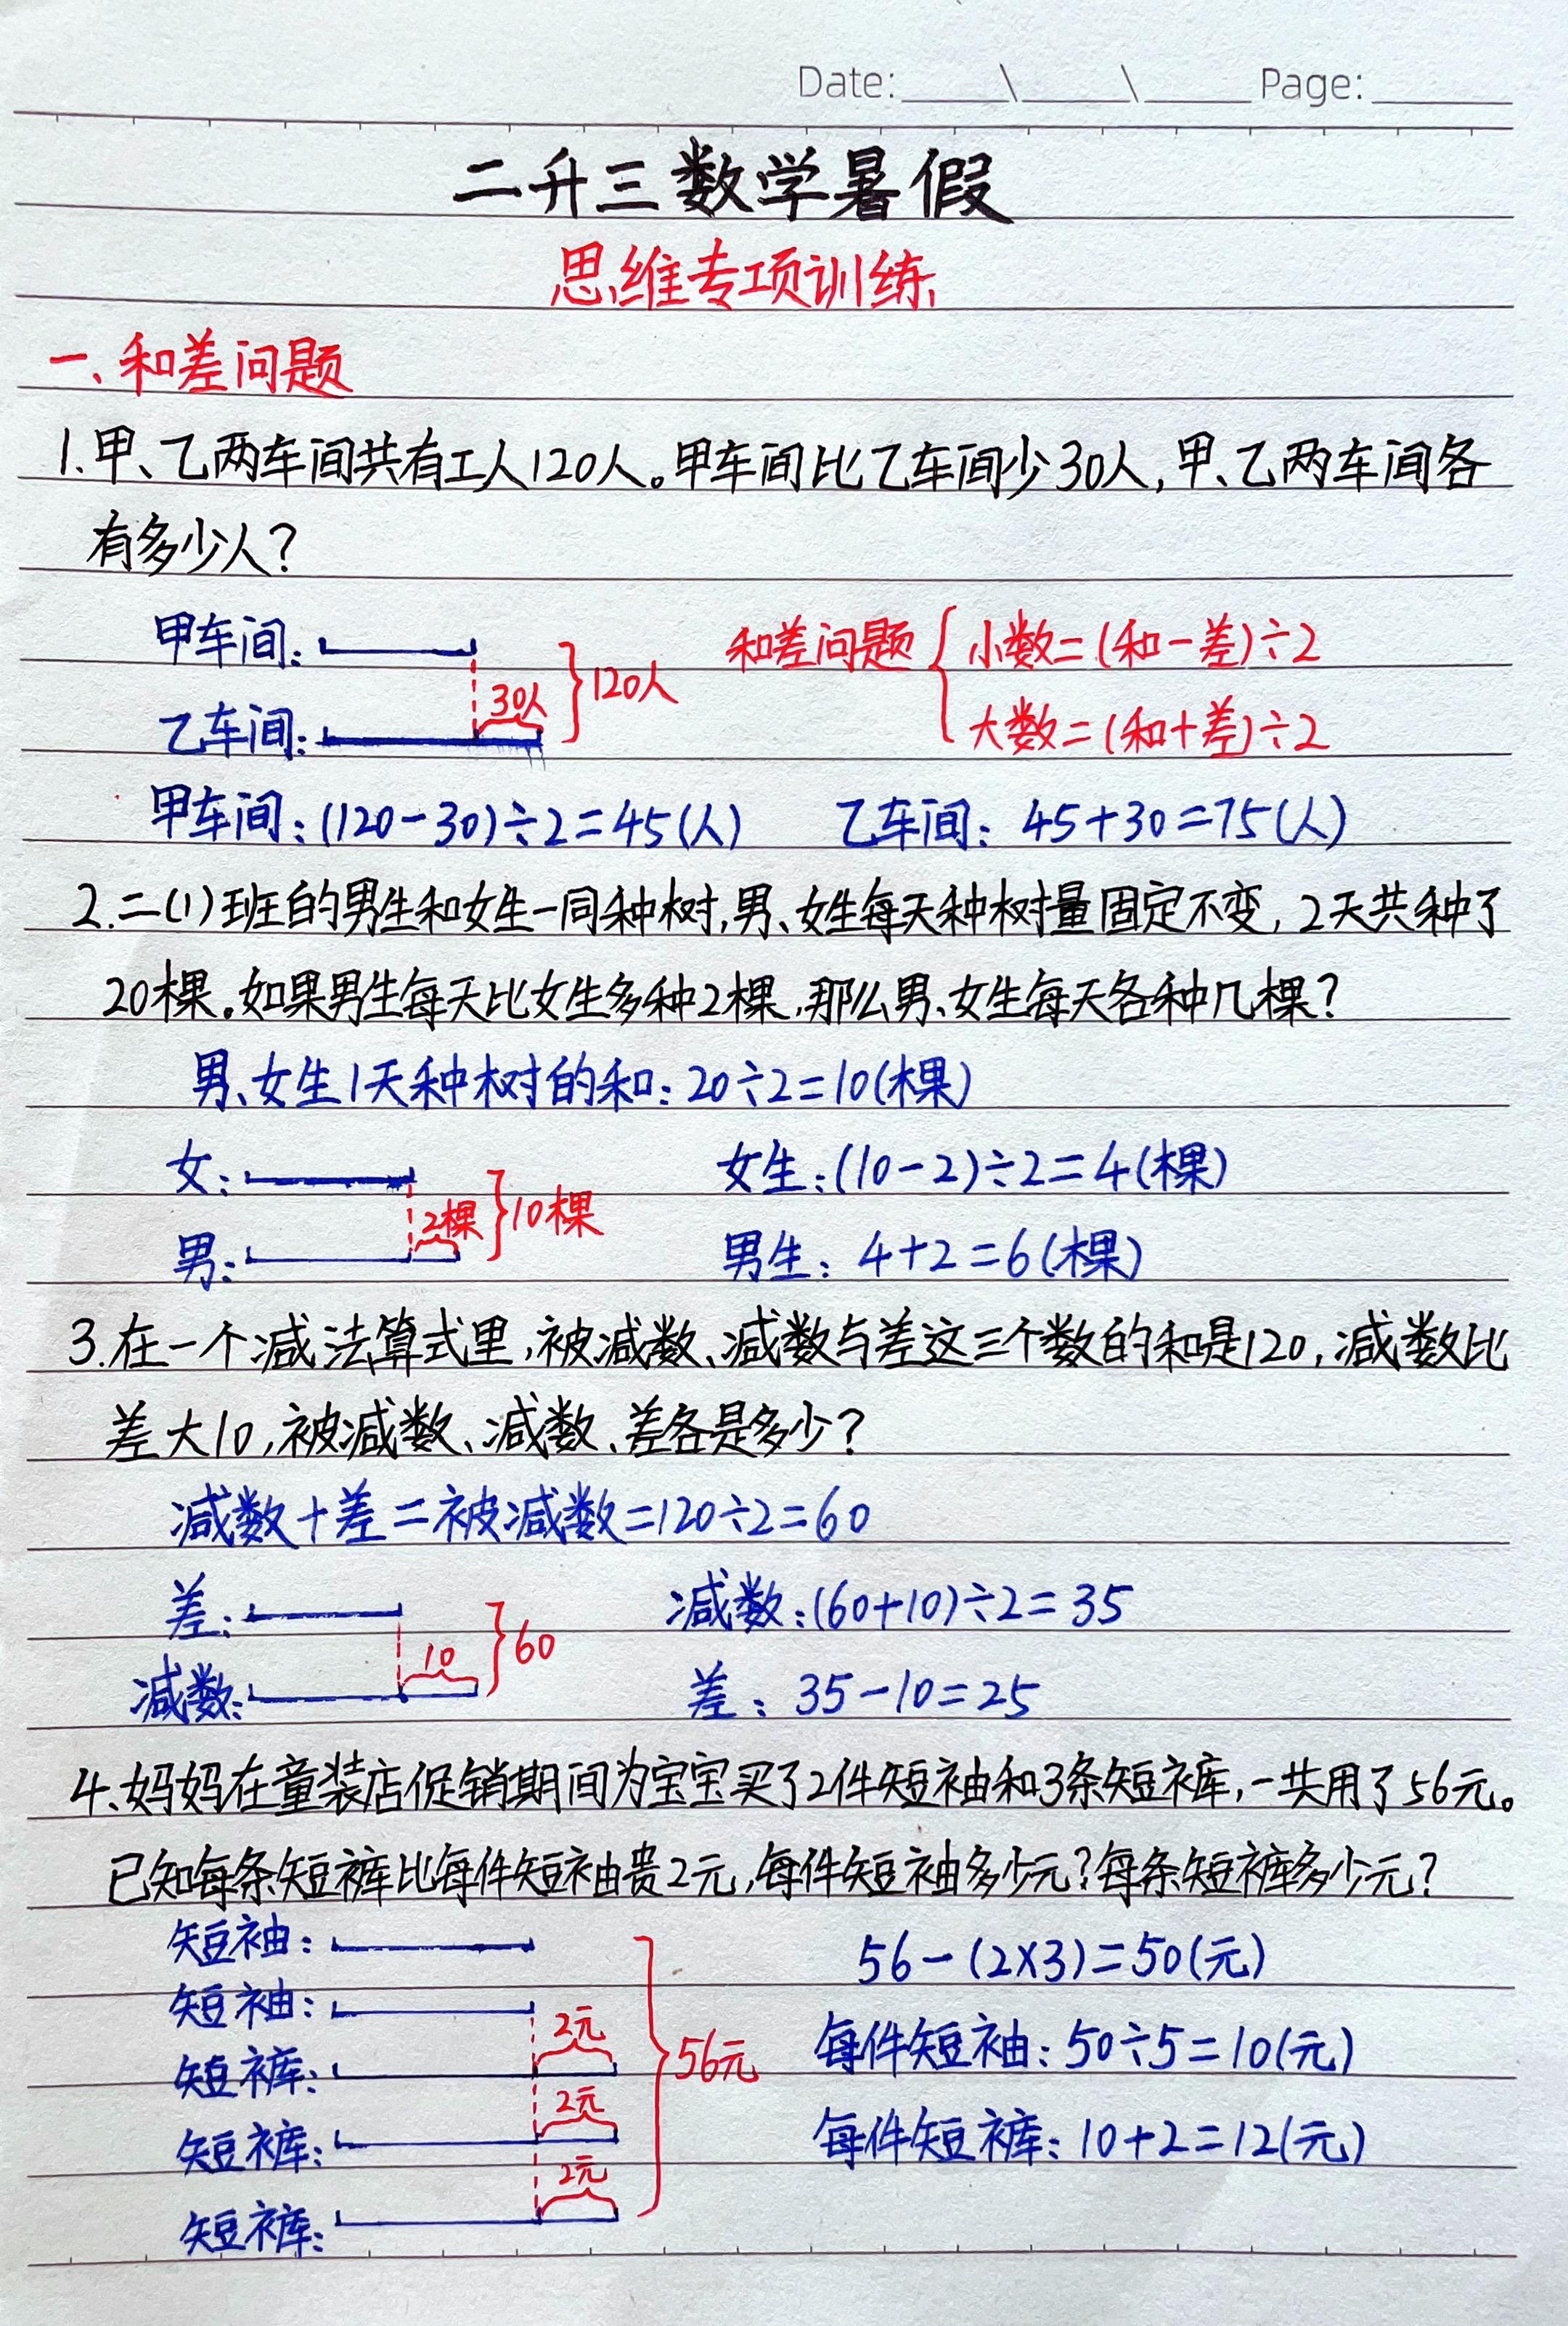 Date: ____\____\____ Page: ____
二升三数学暑假
思维专项训练
一、和差问题
1.甲、乙两车间共有工人120人。甲车间比乙车间少30人,甲、乙两车间各
有多少人?
甲车间:
30人
120人
乙车间:
和差问题
小数=(和-差)÷2
大数=(和+差)÷2
甲车间:(120-30)÷2=45(人) 乙车间: 45+30=75(人)
2.二(1)班的男生和女生一同种树,男、女生每天种树量固定不变,2天共种了
20棵。如果男生每天比女生多种2棵,那么男、女生每天各种几棵?
男、女生1天种树的和:20÷2=10(棵)
女:
2棵
10棵
男:
女生:(10-2)÷2=4(棵)
男生: 4+2=6(棵)
3.在一个减法算式里,被减数、减数与差这三个数的和是120,减数比
差大10,被减数、减数、差各是多少?
减数+差=被减数=120÷2=60
差:
10
60
减数:
减数:(60+10)÷2=35
差: 35-10=25
4、妈妈在童装店促销期间为宝宝买了2件短袖和3条短裤,一共用了56元。
已知每条短裤比每件短袖贵2元,每件短袖多少元?每条短裤多少元?
短袖:
短袖:
2元
短裤:
2元
短裤:
2元
短裤:
56元
56-(2×3)=50(元)
每件短袖:50÷5=10(元)
每件短裤:10+2=12(元)